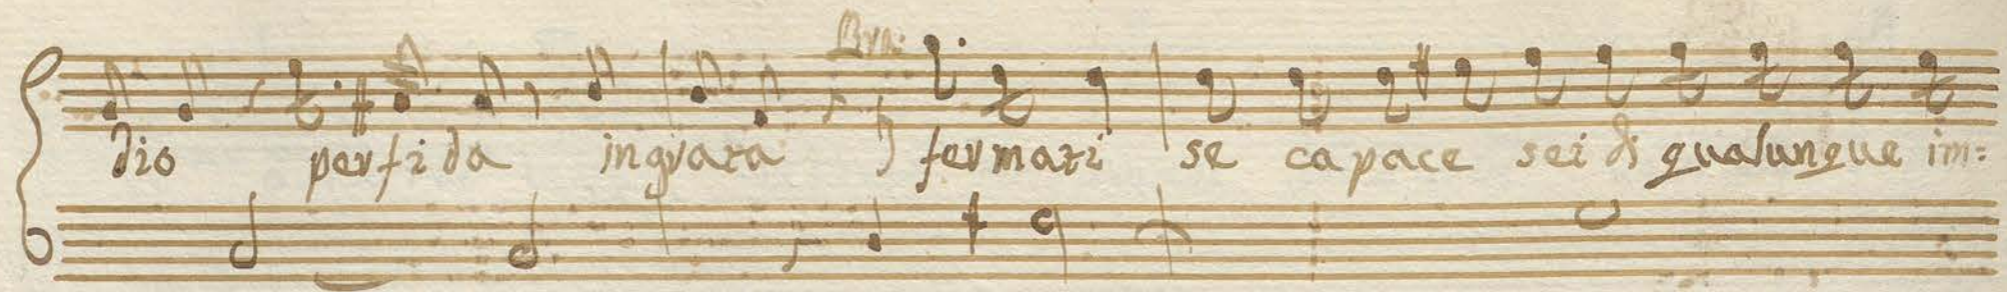 Bra:
dio perfida ingrata fermati se capace sei di qualunque im=